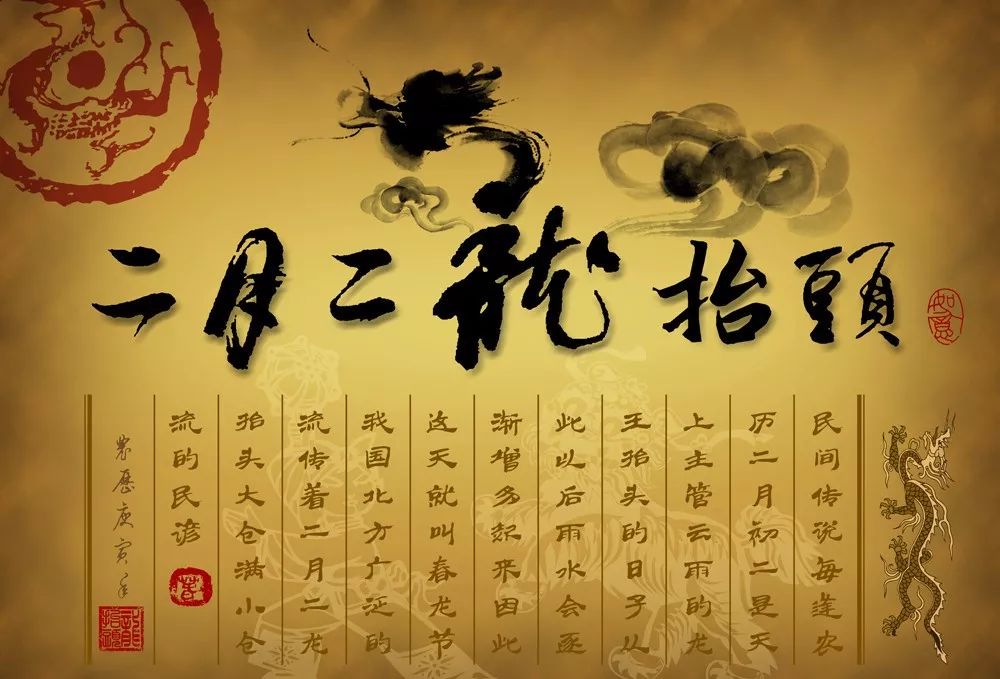 二月二龍抬頭
如意
民间传说每逢农
历二月初二是天
上主管云雨的龙
王抬头的日子从
此以后雨水会逐
渐增多起来因此
这天就叫春龙节
我国北方广泛的
流传着二月二龙
抬头大仓满小仓
流的民谚
农历庚寅年